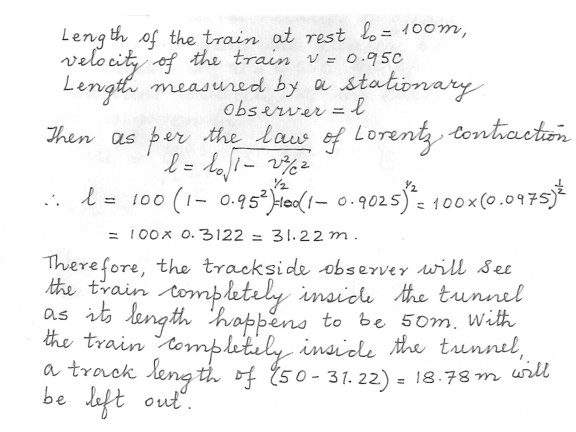 Length of the train at rest l₀ = 100m,
velocity of the train v = 0.95c
Length measured by a stationary
observer = l
Then as per the law of Lorentz contraction
l = l₀√1 - v²/c²
∴ l = 100 (1 - 0.95²)^1/2 = 100(1 - 0.9025)^1/2 = 100×(0.0975)^1/2
= 100 × 0.3122 = 31.22 m.
Therefore, the trackside observer will see
the train completely inside the tunnel
as its length happens to be 50m. With
the train completely inside the tunnel,
a track length of (50 - 31.22) = 18.78 m will
be left out.